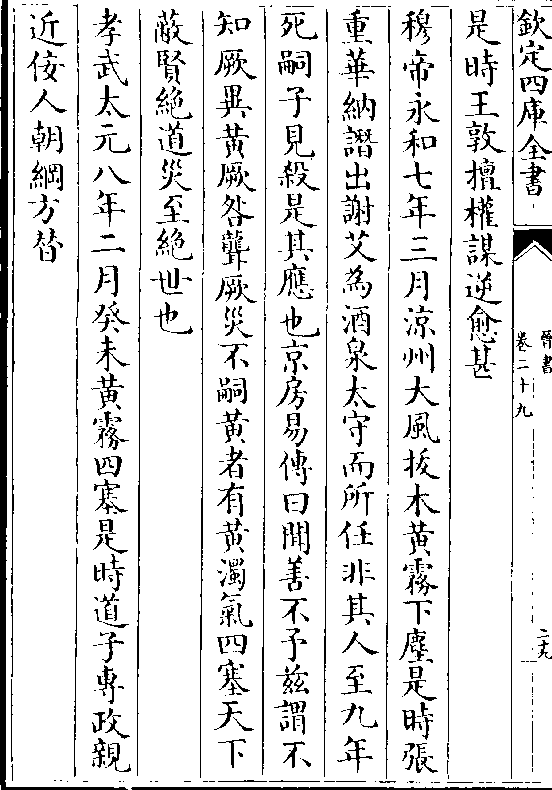 欽定四庫全書
晉書
卷二十九
二十九
是時王敦擅權謀逆愈甚
穆帝永和七年三月涼州大風拔木黃霧下塵是時張
重華納譖出謝艾為酒泉太守而所任非其人至九年
死嗣子見殺是其應也京房易傳曰聞善不予茲謂不
知厥異黃厥咎聾厥災不嗣黃者有黃濁氣四塞天下
蔽賢絶道災至絶世也
孝武太元八年二月癸未黃霧四塞是時道子專政親
近佞人朝綱方替